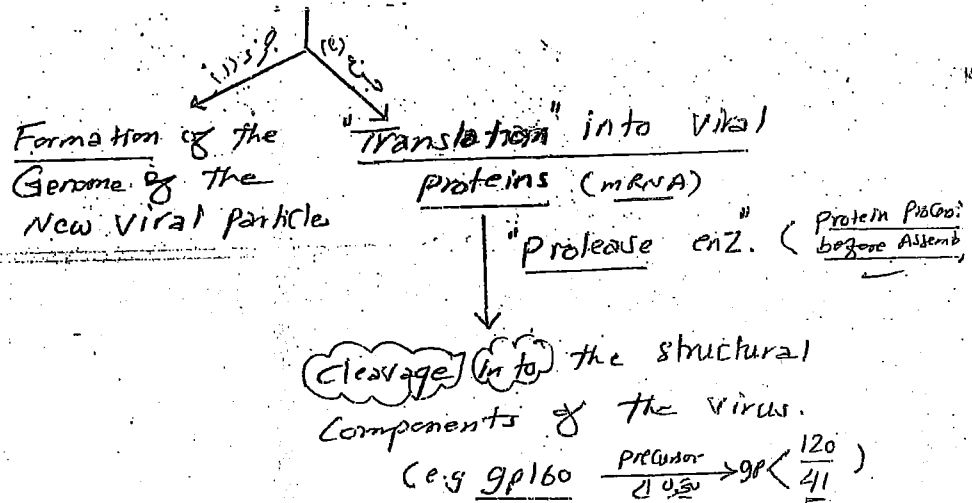 جزء (١)
جزء (٢)
Formation of the
Genome of the
New viral particle
"Translation" into viral
proteins (mRNA)
"Protease enz." (Protein
before Assemb
Cleavage into the structural
Components of the virus.
(e.g gp160 precursor → gp < 120
41 )